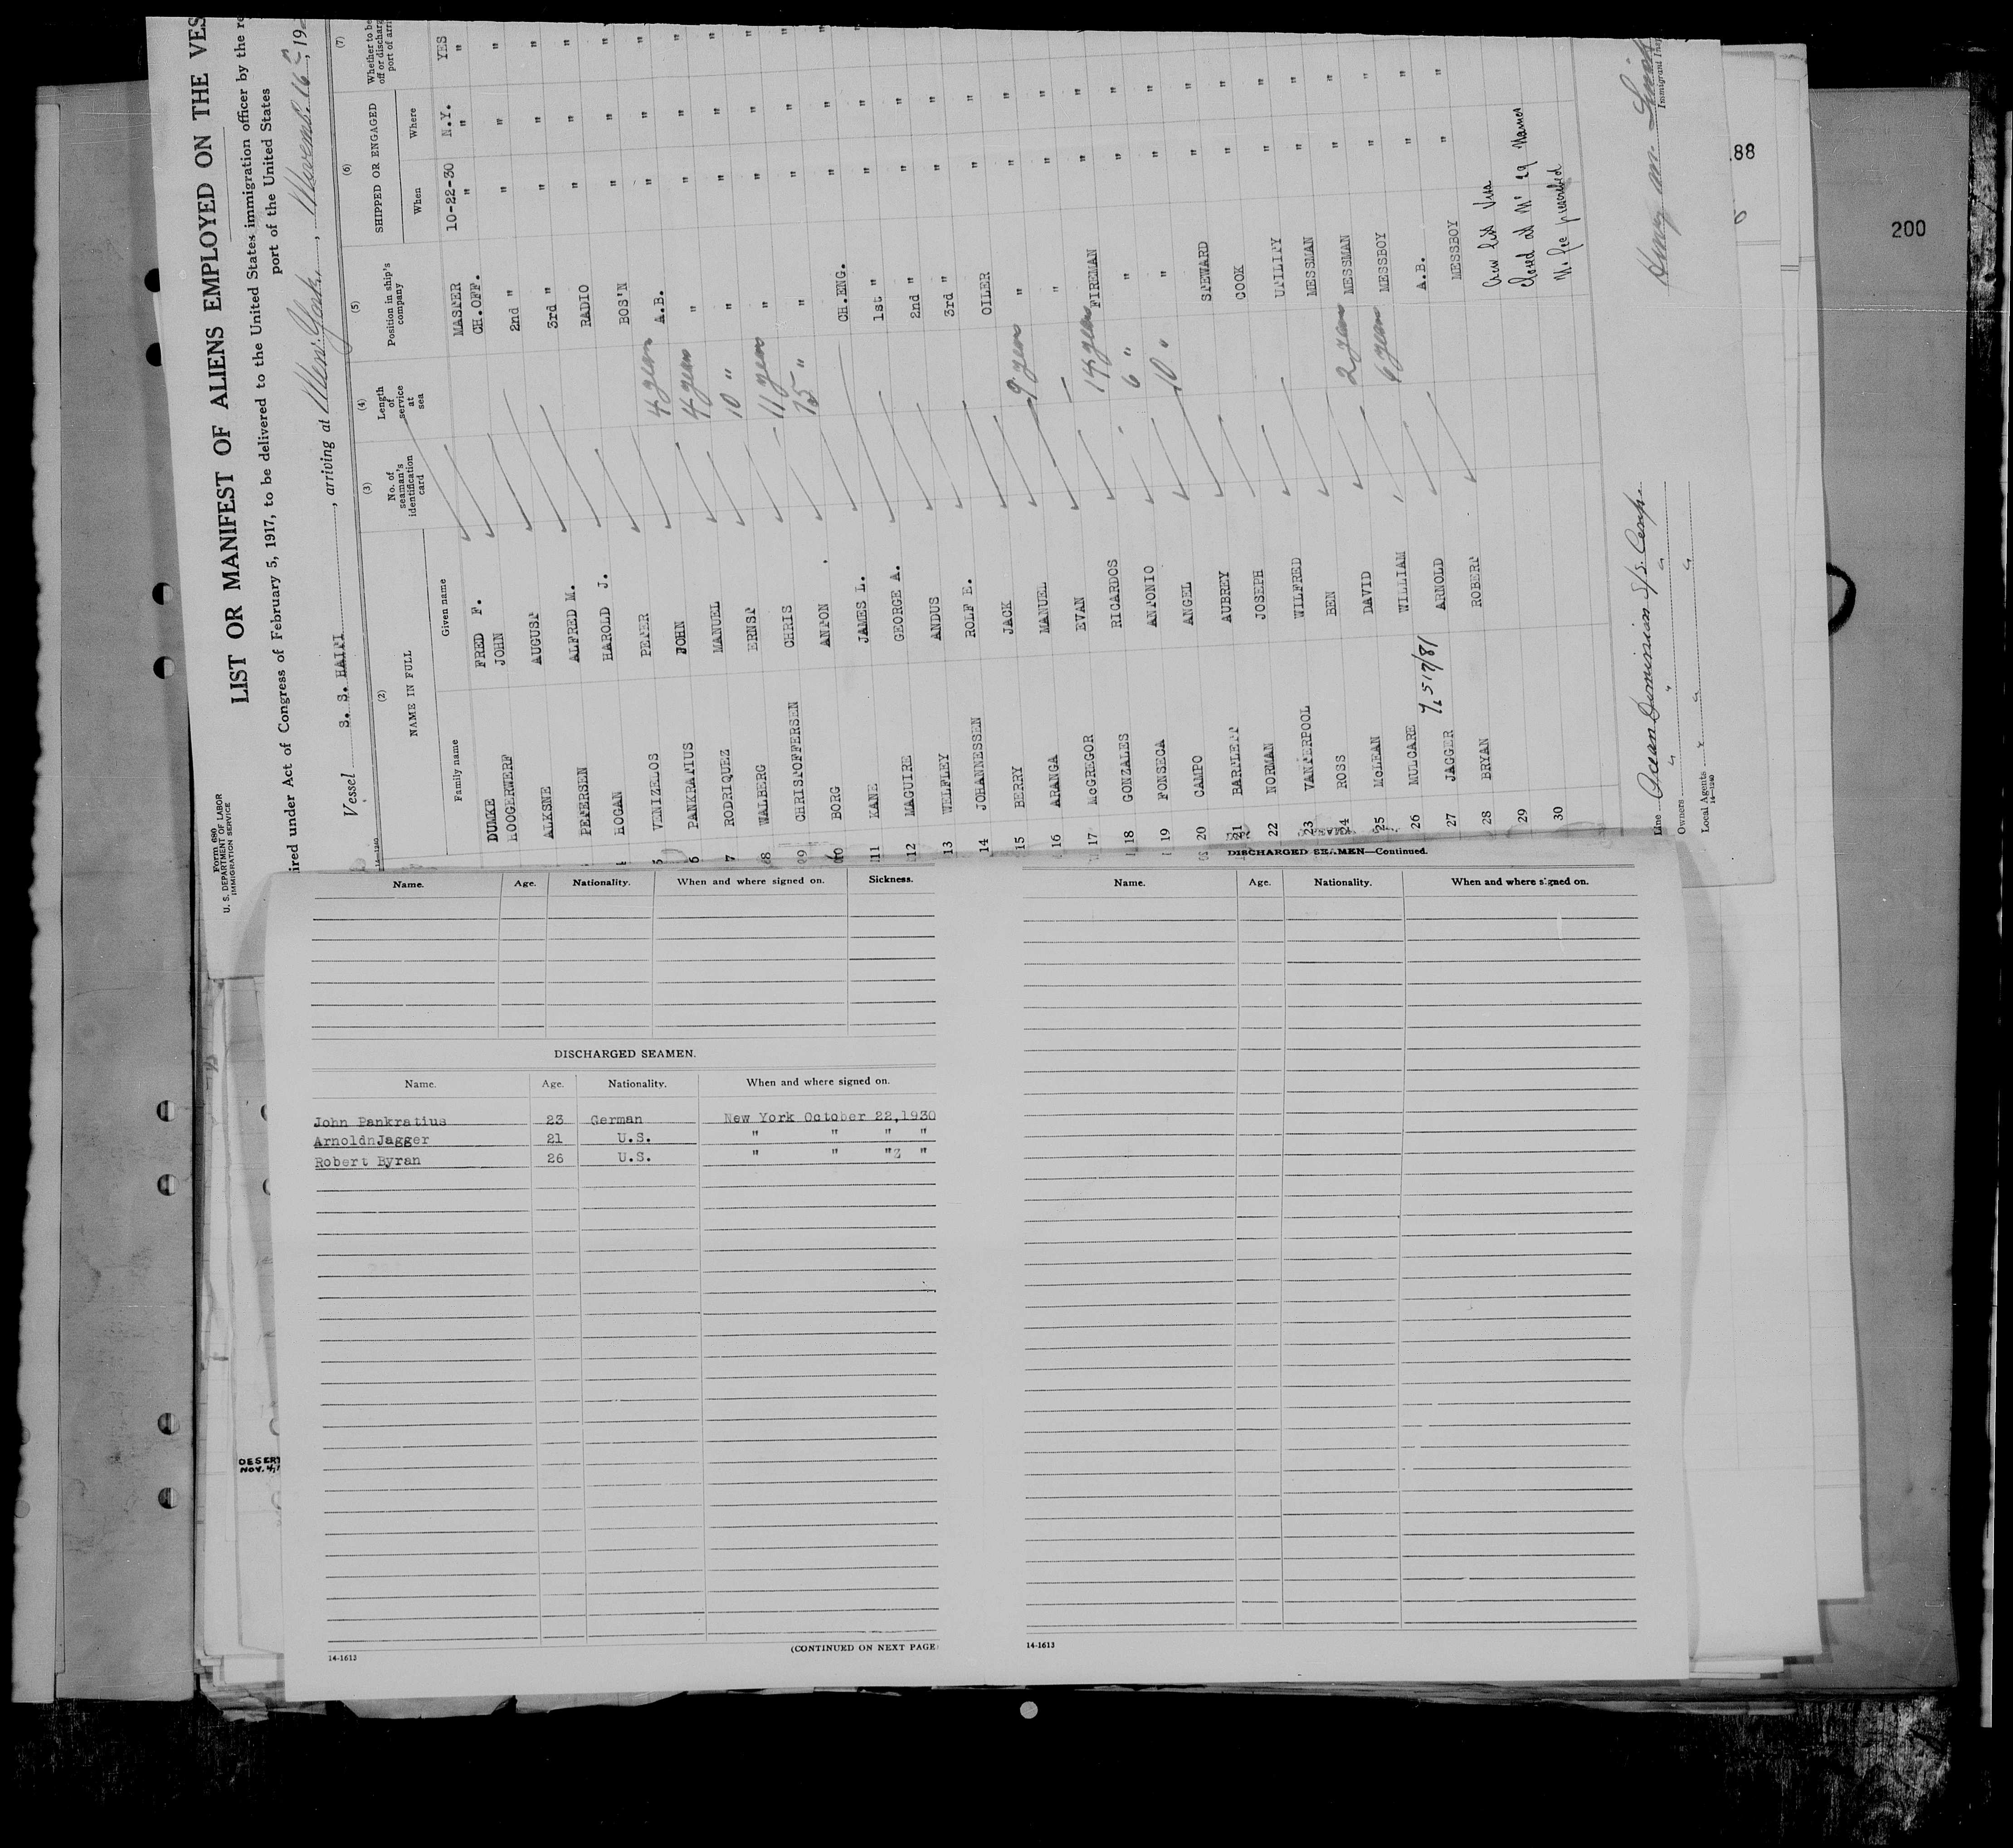 Form 680
U. S. DEPARTMENT OF LABOR
IMMIGRATION SERVICE
LIST OR MANIFEST OF ALIENS EMPLOYED ON THE VES
ired under Act of Congress of February 5, 1917, to be delivered to the United States immigration officer by the re
port of the United States
Vessel S. S. HAITI, arriving at New York, November 16, 19
(2) (3) (4) (5) (6) (7)
NAME IN FULL
Family name Given name
No. of seaman's identification card
Length of service at sea
Position in ship's company
SHIPPED OR ENGAGED
When Where
Whether to be
off or discharg
port of arri
DUMKE FRED F. MASTER 10-22-30 N.Y. YES
HOOGERWERF JOHN CH.OFF. " " "
ALKSNE AUGUST 2nd " " " "
PETERSEN ALFRED M. 3rd " " " "
4 HOGAN HAROLD J. RADIO " " "
5 VENIZELOS PETER BOS'N " " "
6 PANKRATIUS JOHN 4 years A.B. " " "
7 RODRIQUEZ MANUEL 4 years " " " "
8 WALBERG ERNST 10 " " " " "
9 CHRISTOFFERSEN CHRIS 11 years " " " "
10 BORG ANTON 15 " " " " "
11 KANE JAMES L. CH.ENG. " " "
12 MAGUIRE GEORGE A. 1st " " " "
13 WELFLEY ANDUS 2nd " " "
14 JOHANNESSEN ROLF E. 3rd " " "
15 BERRY JACK OILER " "
16 ARANGA MANUEL 9 years " " "
17 McGREGOR EVAN " " "
18 GONZALES RICARDOS FIREMAN " "
19 FONSECA ANTONIO 6 " " " "
20 CAMPO ANGEL 10 " " " "
21 BARTLETT AUBREY STEWARD " "
22 NORMAN JOSEPH COOK " "
23 VANTERPOOL WILFRED UTILITY " "
24 ROSS BEN MESSMAN " "
25 McLEAN DAVID 2 years MESSMAN " "
26 MULCARE WILLIAM 6 years MESSBOY " "
27 JAGGER ARNOLD A.B. " "
28 BRYAN ROBERT MESSBOY " "
29
30
Crew list Visa
Closed at No 29 Names
No fee prescribed
Line Ocean Dominion S/S. Corp.
Owners " " "
Local Agents " " "
14-1240
Immigrant Insp
88
200
DESER
NOV. 4,
Name. Age. Nationality. When and where signed on. Sickness.
DISCHARGED SEAMEN.
Name. Age. Nationality. When and where signed on.
John Pankratius 23 German New York October 22,1930
ArnoldnJagger 21 U.S. " " " "
Robert Byran 26 U.S. " " "3 "
(CONTINUED ON NEXT PAGE
14-1613
DISCHARGED SEAMEN—Continued.
Name. Age. Nationality. When and where signed on.
14-1613